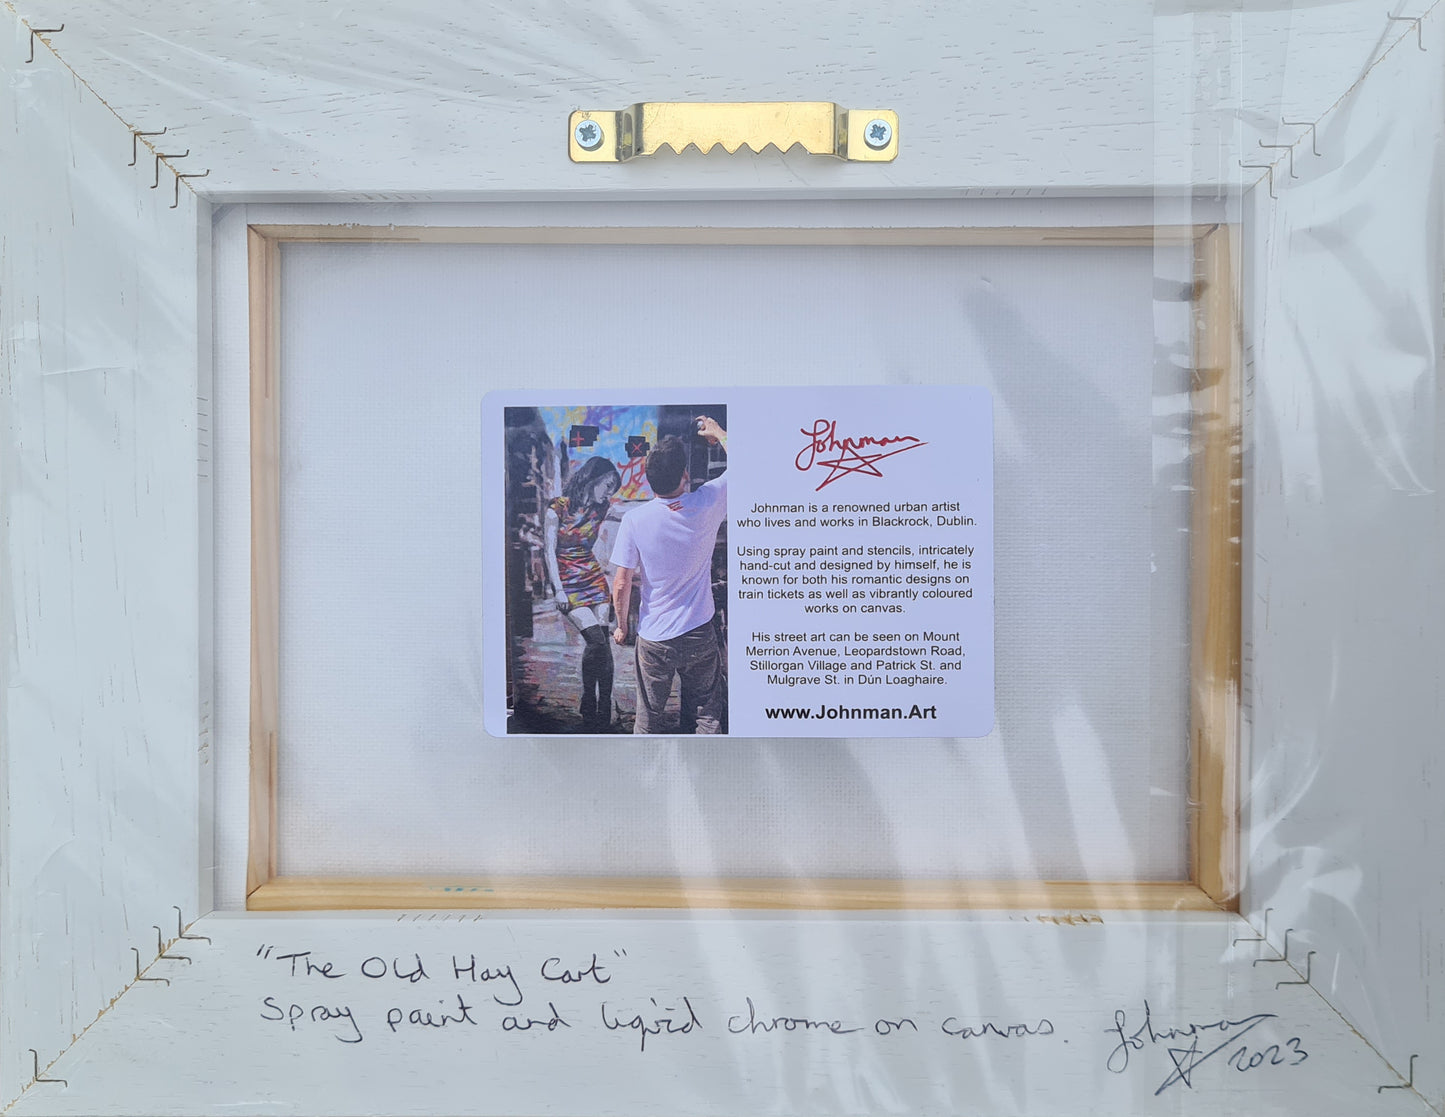 Johnman
Johnman is a renowned urban artist
who lives and works in Blackrock, Dublin.
Using spray paint and stencils, intricately
hand-cut and designed by himself, he is
known for both his romantic designs on
train tickets as well as vibrantly coloured
works on canvas.
His street art can be seen on Mount
Merrion Avenue, Leopardstown Road,
Stillorgan Village and Patrick St. and
Mulgrave St. in Dún Loaghaire.
www.Johnman.Art
"The Old Hay Cart"
Spray paint and liquid chrome on canvas.
Johnman 2023